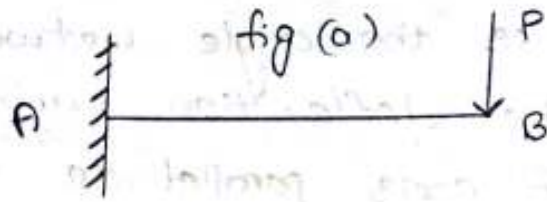 fig (a)
P
A
B